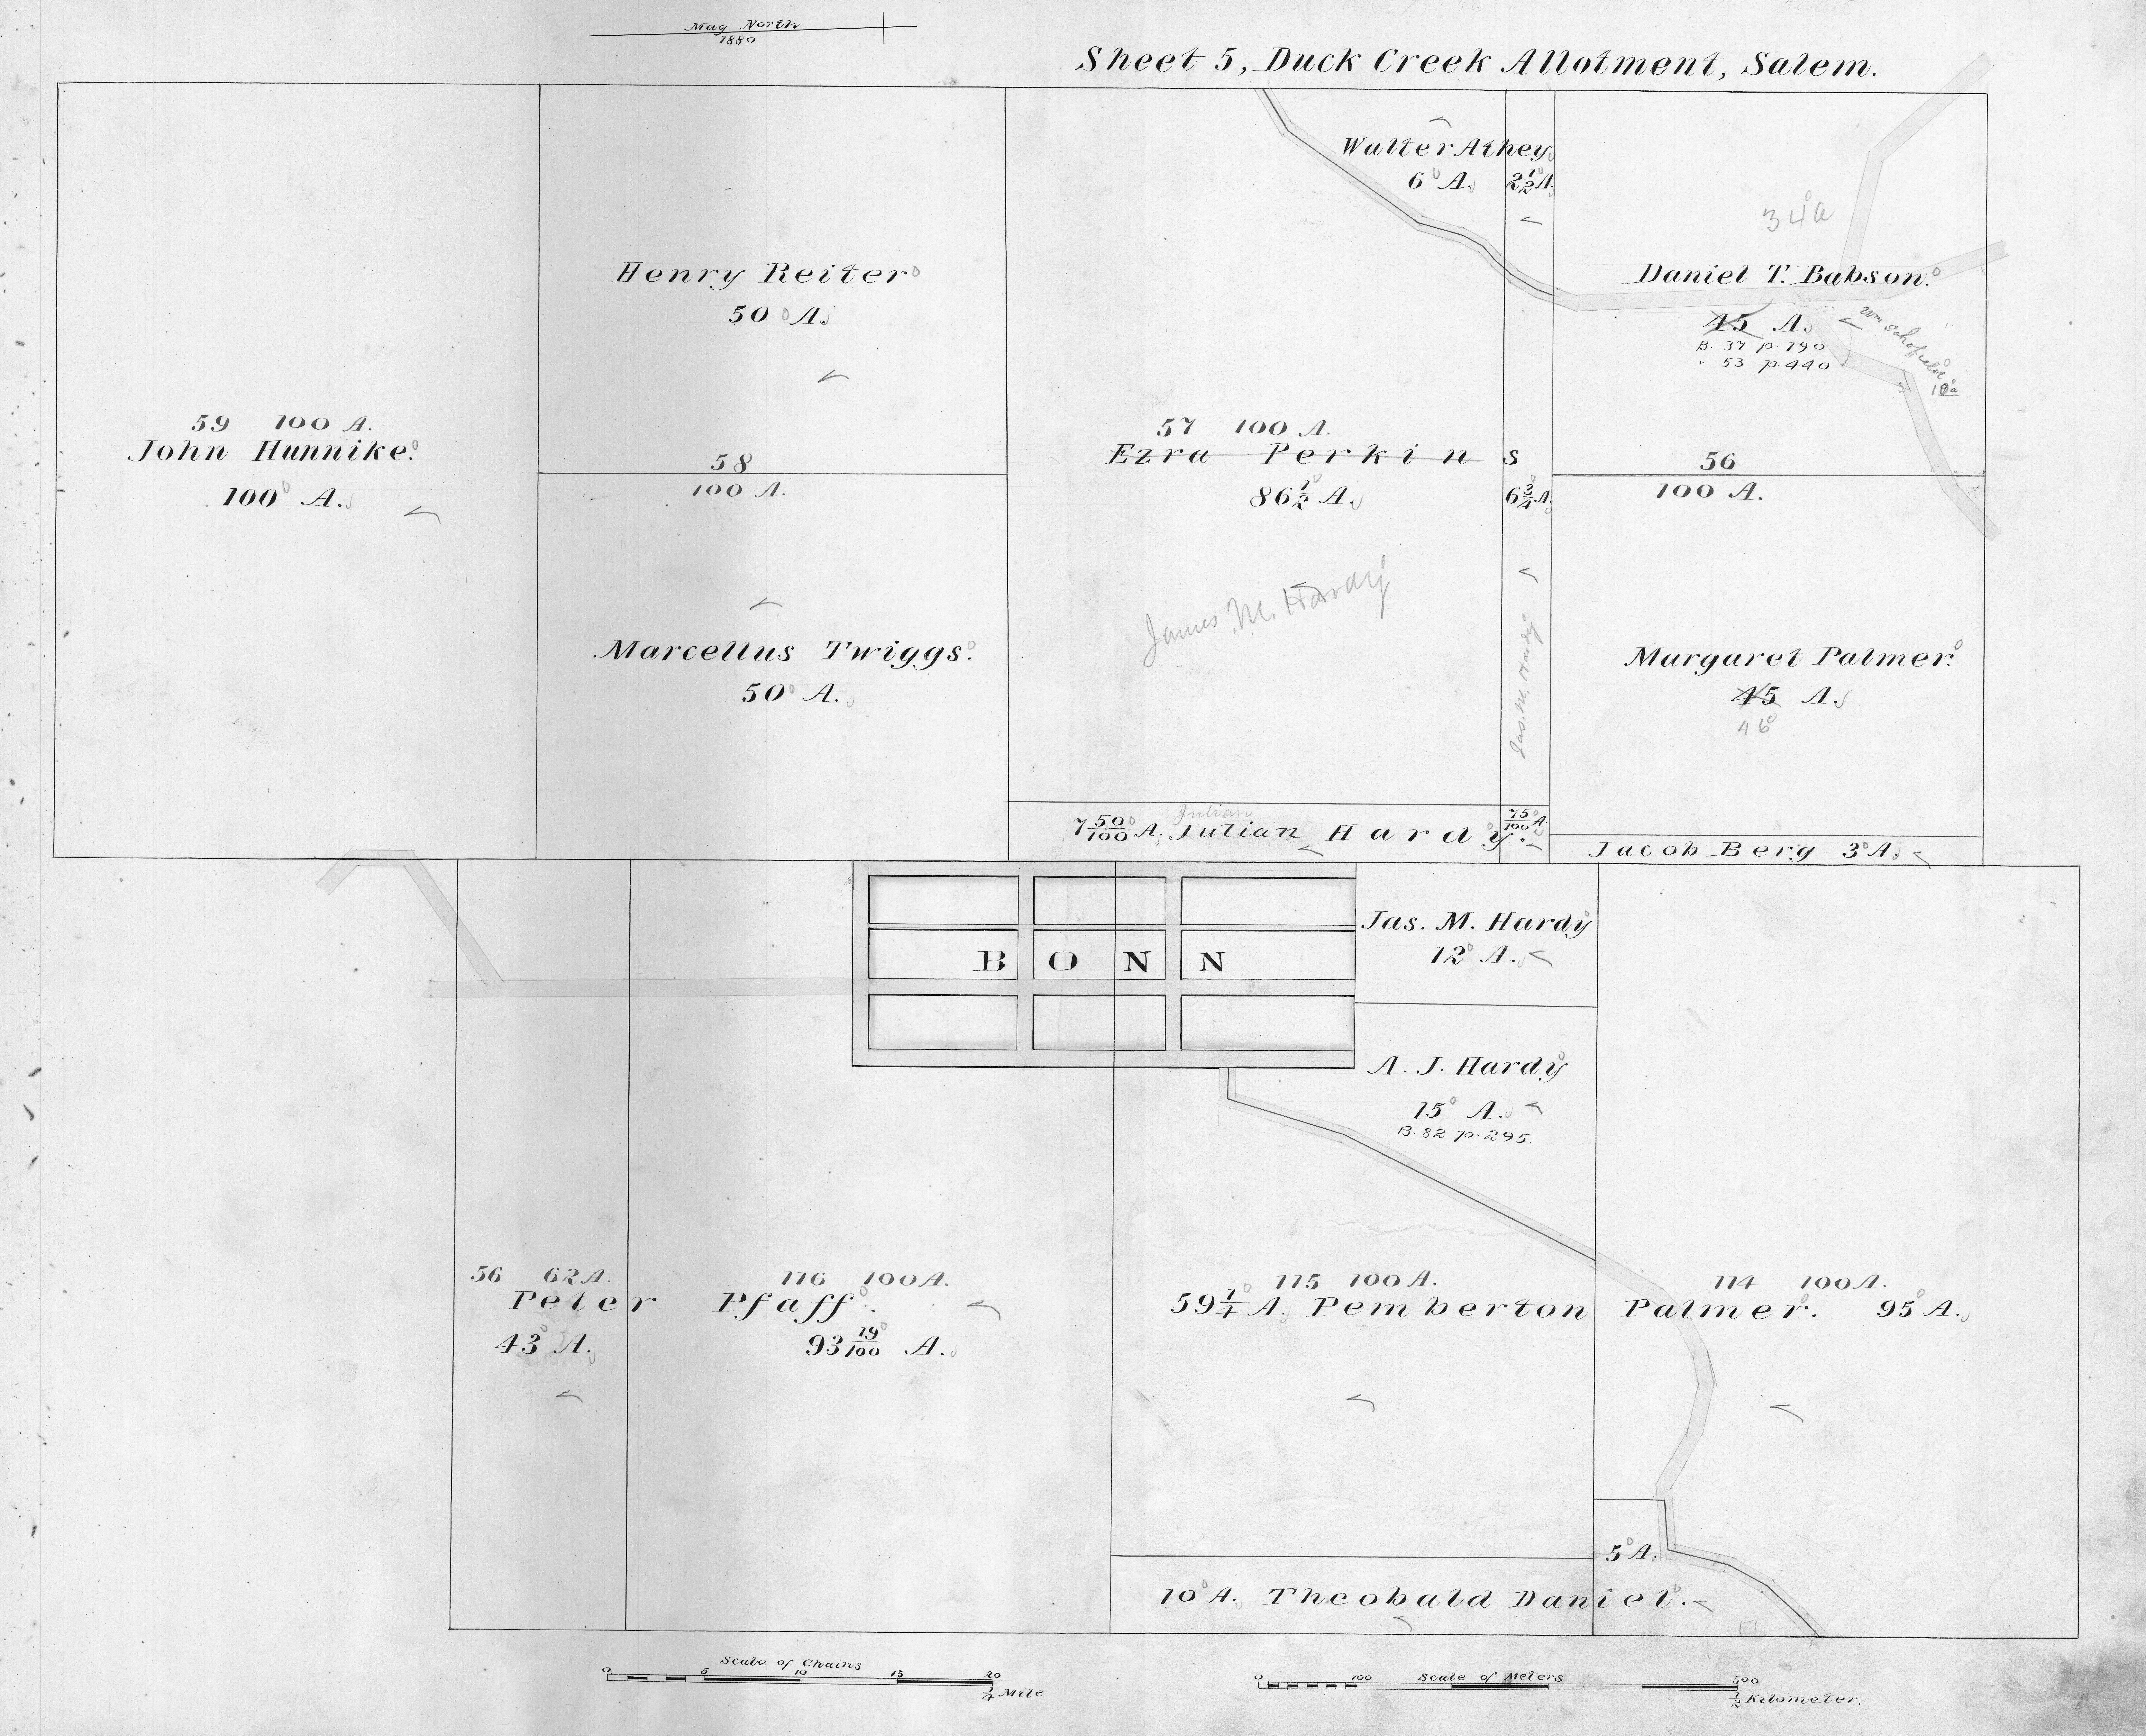 Mag. North
1880
Sheet 5, Duck Creek Allotment, Salem.
Walter Athey
6 A. 2 1/2 A.
34 a
Henry Reiter
50 A.
Daniel T. Babson.
45 A.
B. 37 p. 190
" 53 p. 440
Wm Schofield
10 a
59 100 A.
John Hunnike.
100 A.
58
100 A.
57 100 A.
Ezra Perkins
86 1/2 A. 6 3/4 A.
56
100 A.
James M. Hardy
Jas. M. Hardy
Marcellus Twiggs.
50 A.
Margaret Palmer.
45 A.
46
Julian
7 50/100 A. Julian Hardy. 75/100 A.
Jacob Berg 3 A.
BONN
Jas. M. Hardy
12 A.
A. J. Hardy
15 A.
B. 82 p. 295.
56 62 A.
116 100 A.
Peter Pfaff.
43 A. 93 19/100 A.
115 100 A.
114 100 A.
59 1/4 A. Pemberton Palmer. 95 A.
5 A.
10 A. Theobald Daniel.
Scale of Chains
0 5 10 15 20
1/4 Mile
Scale of Meters
0 100 500
1/2 Kilometer.